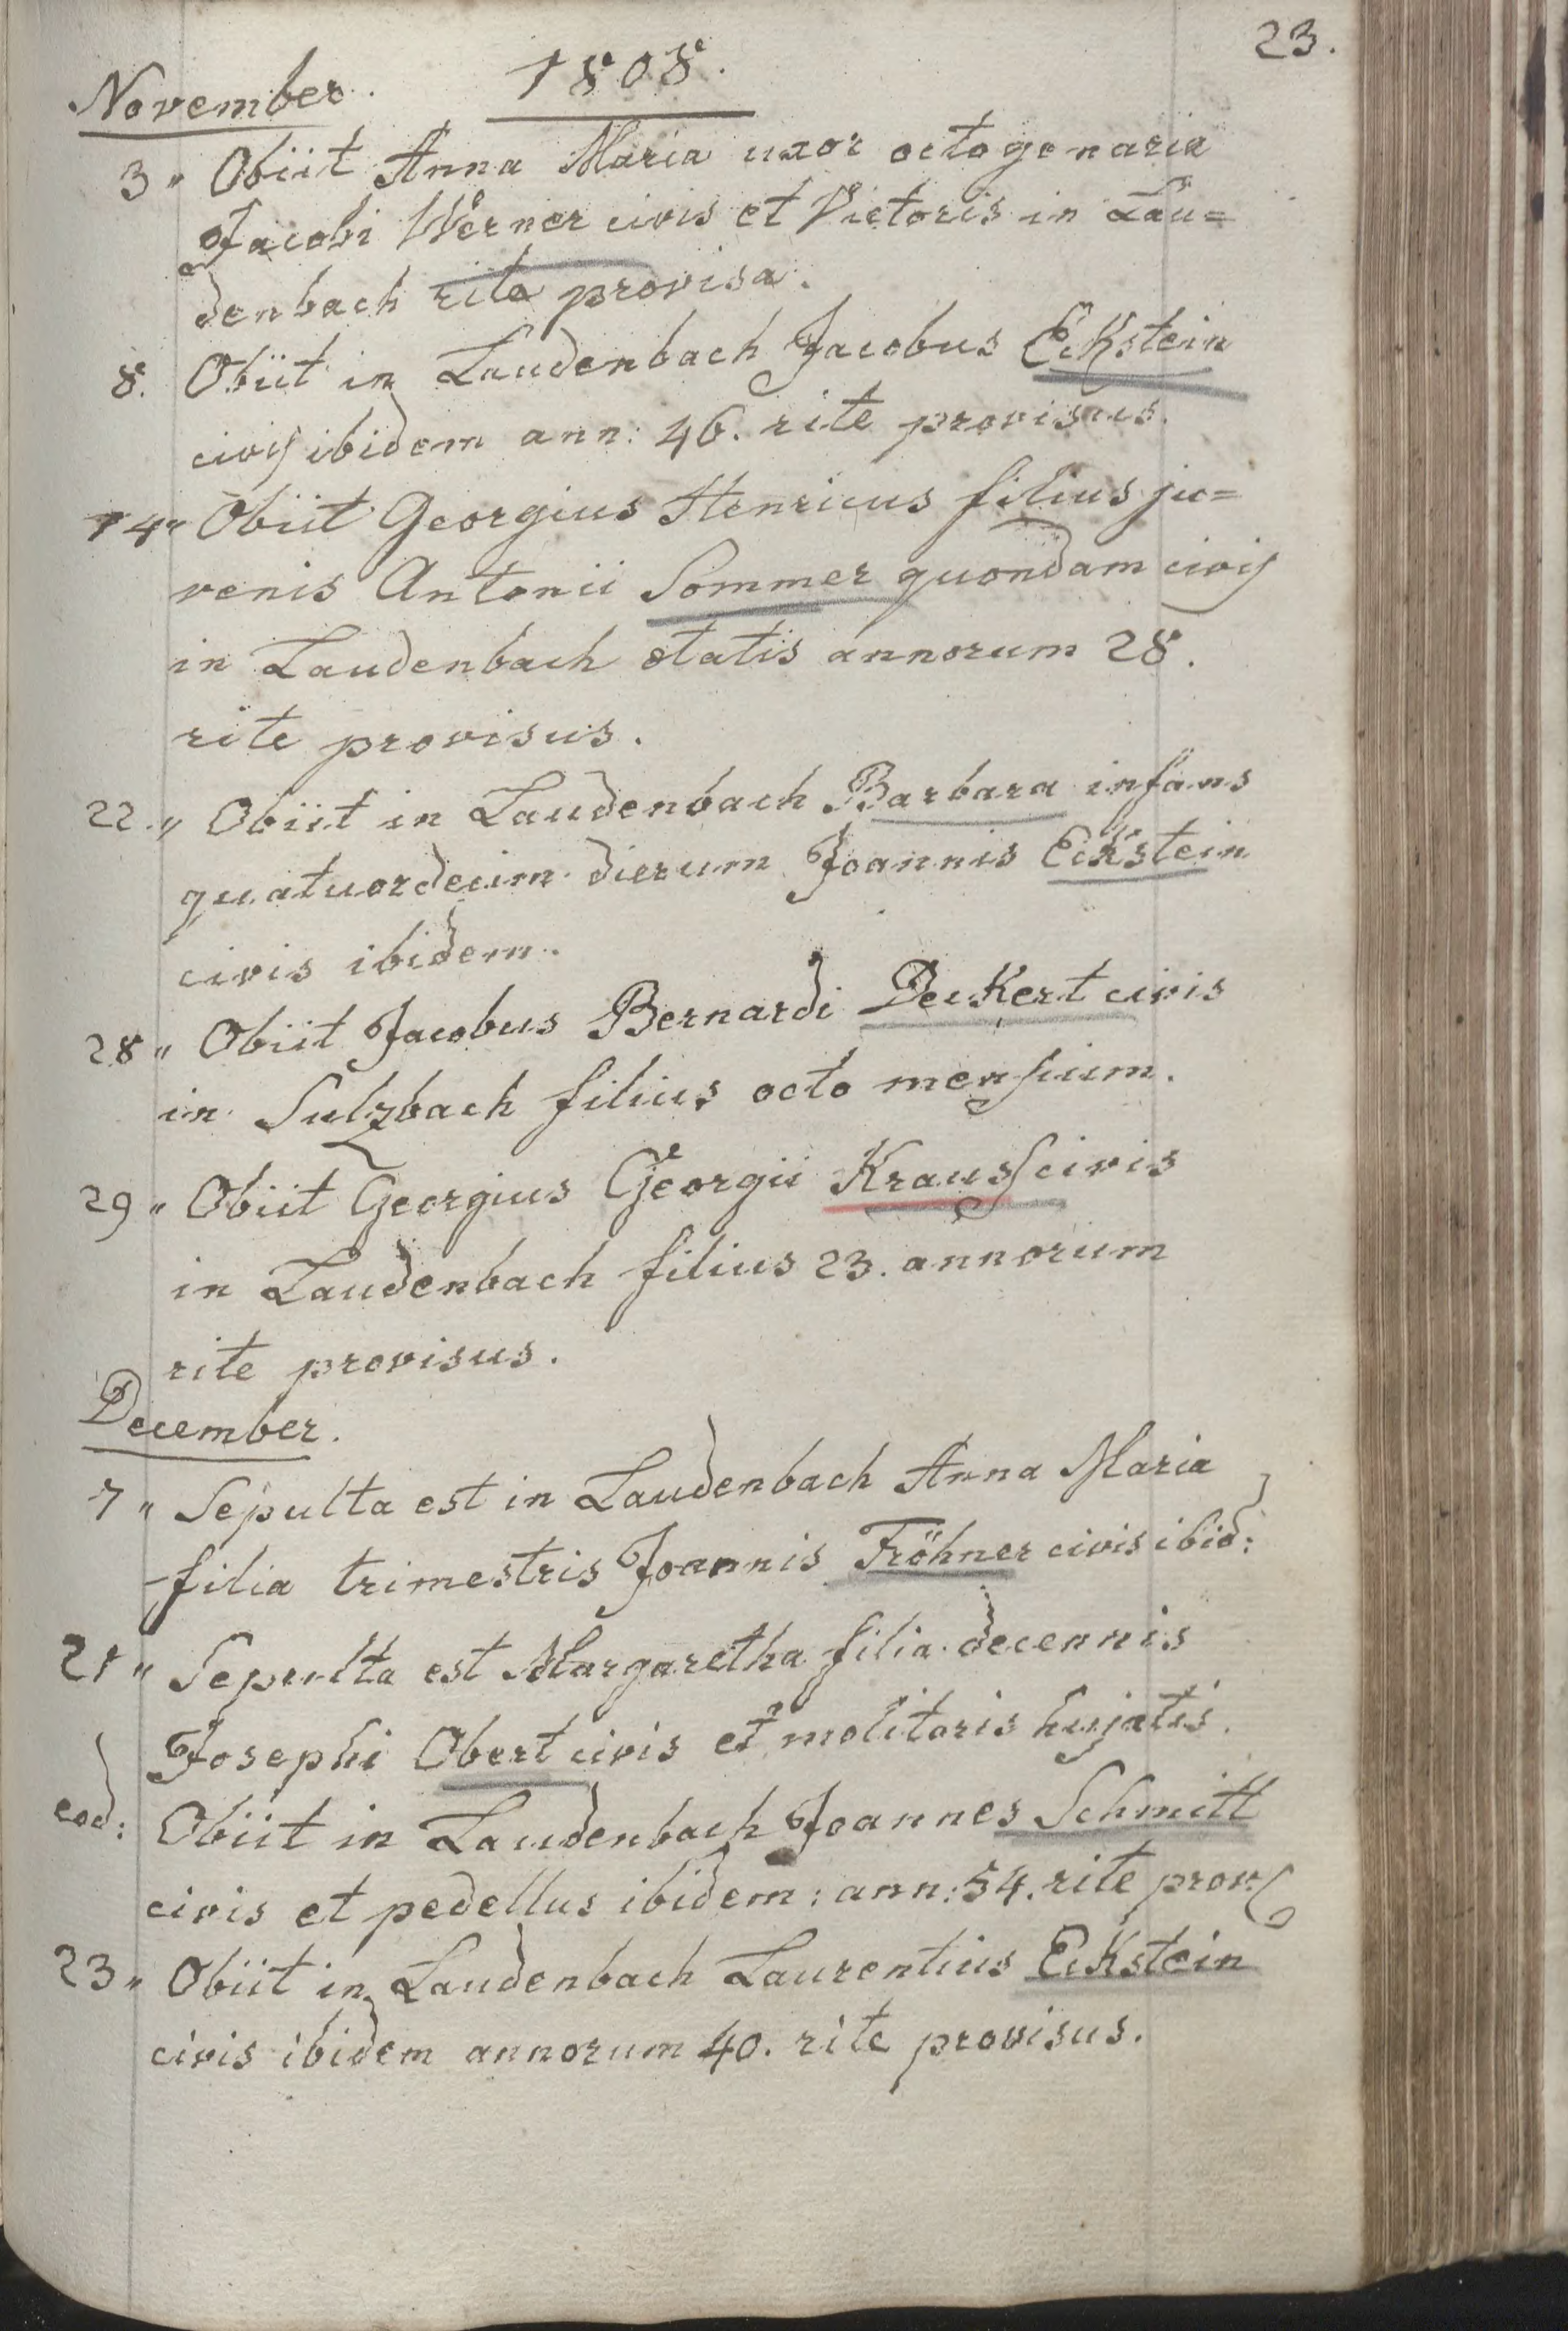 23.
November. 1808.
3 " Obiit Anna Maria uxor octogenaria
Jacobi Werner civis et Victoris in Lau=
denbach rite provisa.
8. Obiit in Laudenbach Jacobus Eckstein
civis ibidem ann: 46. rite provisus.
14" Obiit Georgius Henricus filius ju=
venis Antonii Sommer quondam civis
in Laudenbach ætatis annorum 28.
rite provisus.
22." Obiit in Laudenbach Barbara infans
quatuordecim dierum Joannis Eckstein
civis ibidem.
28 " Obiit Jacobus Bernardi Deckert civis
in Sulzbach filius octo mensium.
29 " Obiit Georgius Georgii Krauss civis
in Laudenbach filius 23. annorum
rite provisus.
December.
7 " Sepulta est in Laudenbach Anna Maria
filia trimestris Joannis Fröhner civis ibid:
21 " Sepulta est Margaretha filia decennis
Josephi Obert civis et molitoris hujatis.
eod: Obiit in Laudenbach Joannes Schmitt
civis et pedellus ibidem: ann: 54. rite prov:
23 " Obiit in Laudenbach Laurentius Eckstein
civis ibidem annorum 40. rite provisus.